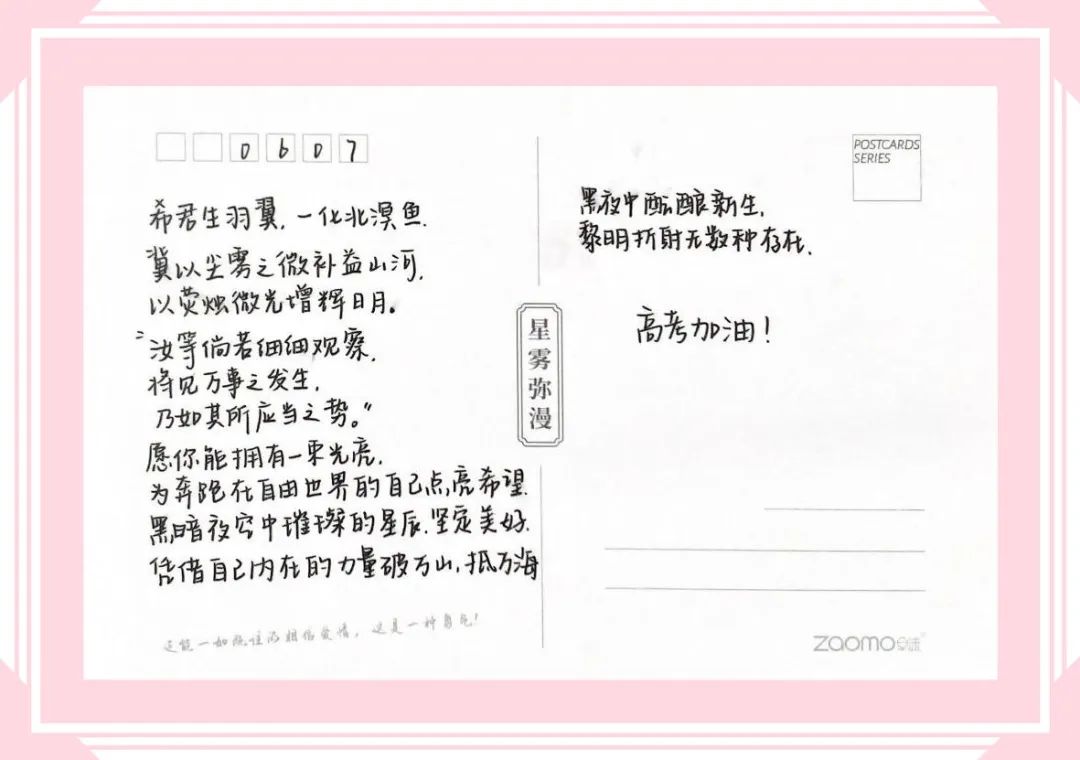 0607
希君生羽翼,一化北溟鱼.
冀以尘雾之微补益山河,
以荧烛微光增辉日月。
“汝等倘若细细观察,
将见万事之发生,
乃如其所应当之势。”
愿你能拥有一束光亮,
为奔跑在自由世界的自己点亮希望.
黑暗夜空中璀璨的星辰.坚定美好.
凭借自己内在的力量破万山,抵万海
还能一如既往的相信爱情,这是一种勇气!
星雾弥漫
POSTCARDS
SERIES
黑夜中酝酿新生,
黎明折射无数种存在.
高考加油!
zaomo